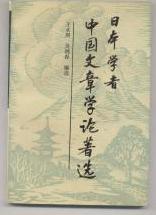 日本学者
中国文章学论著选
王水照 吴鸿春 编选